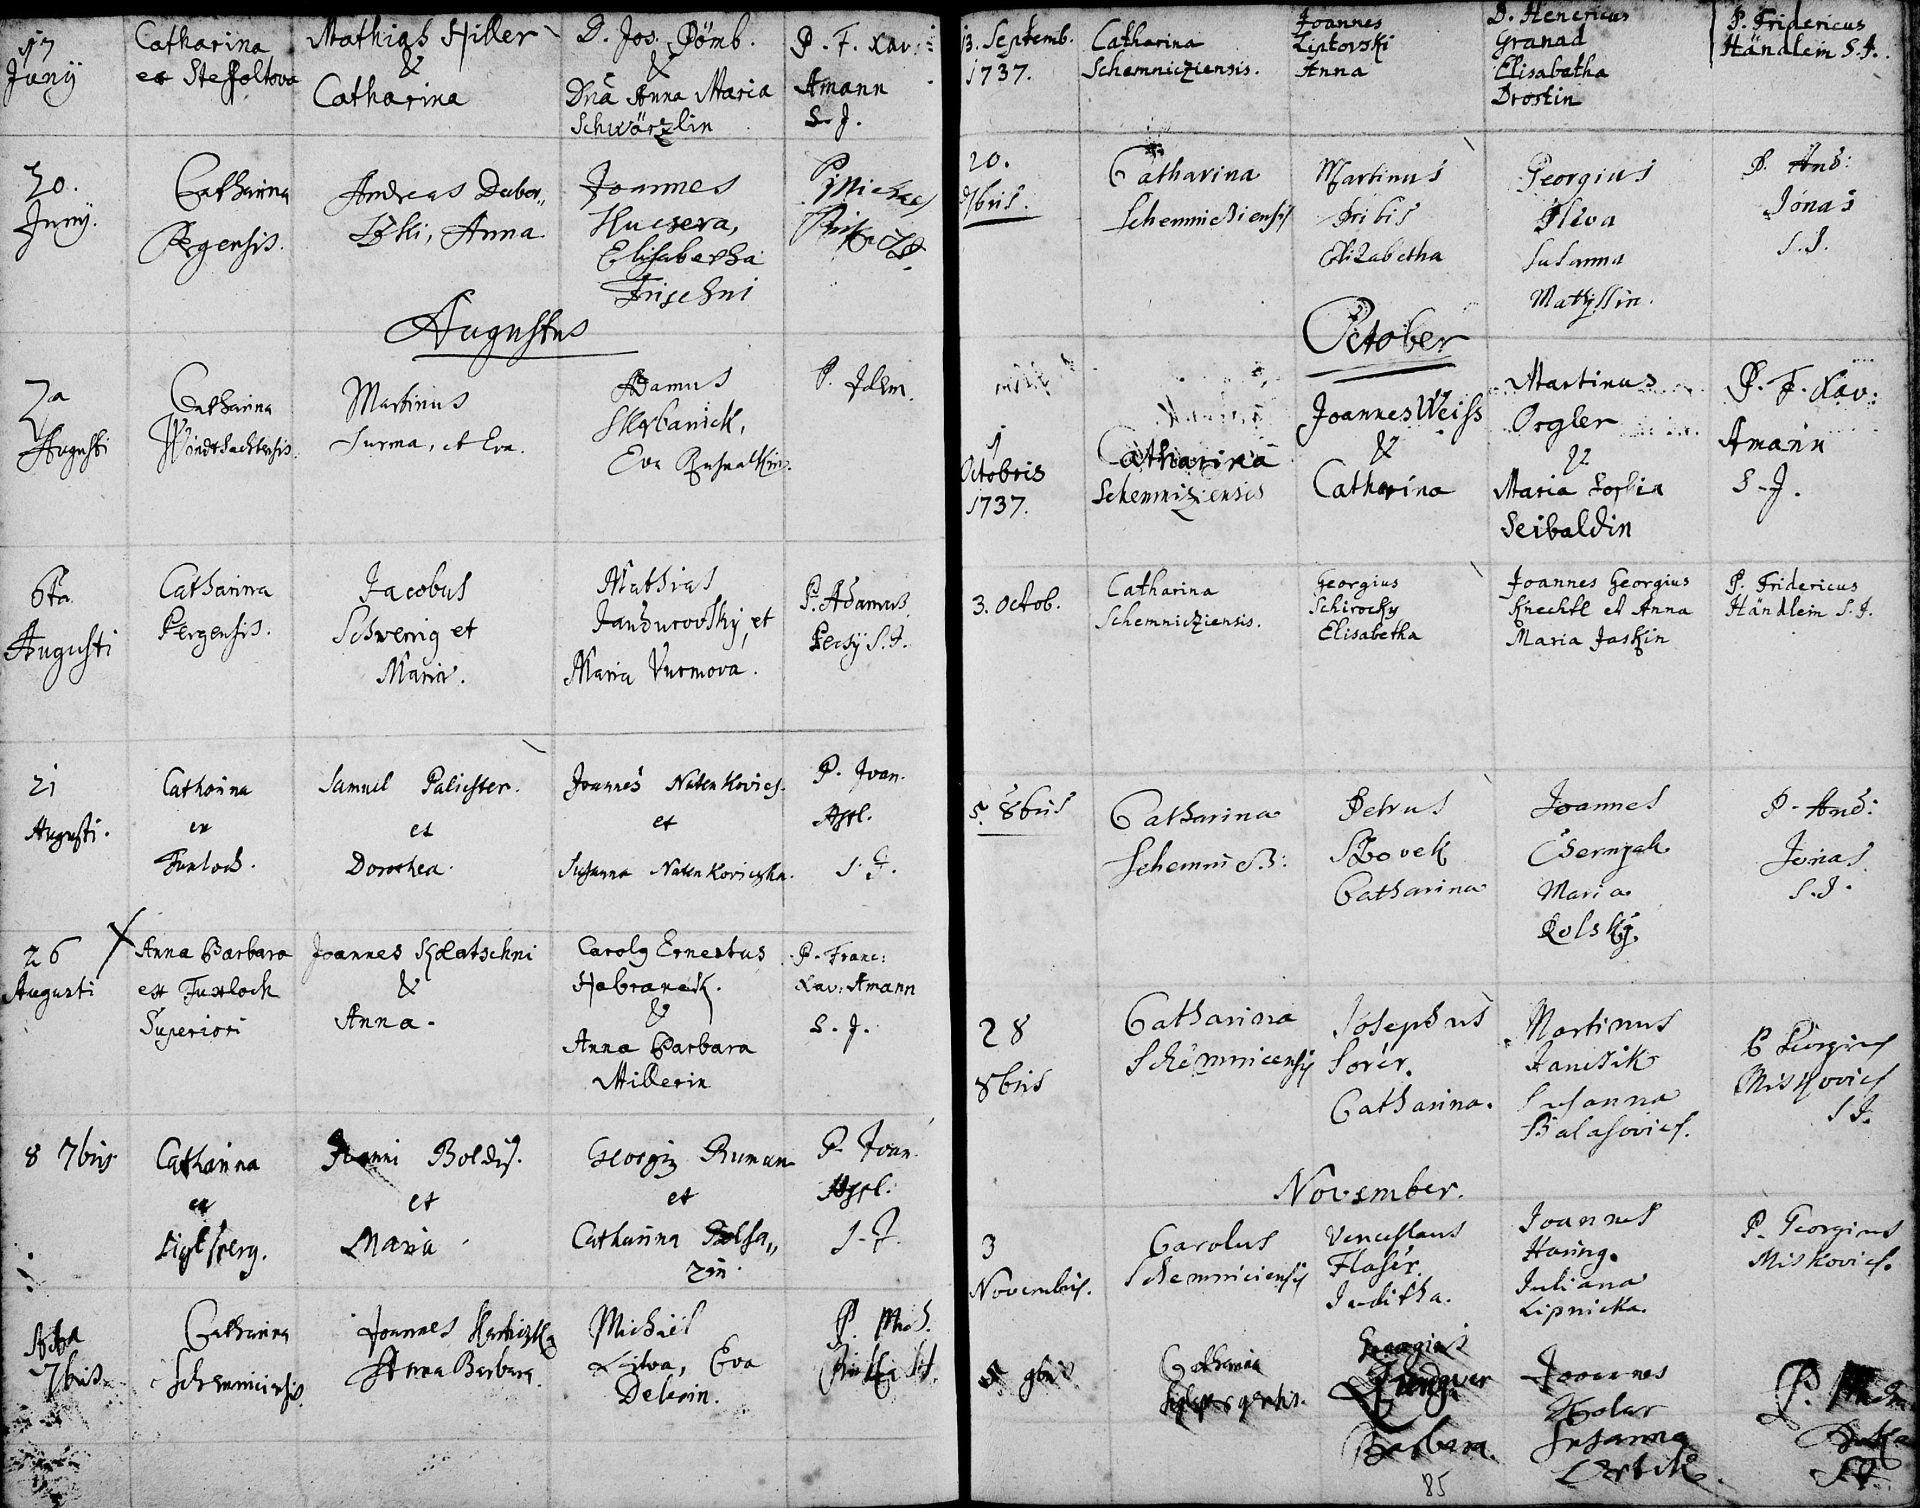 17
Junij
Catharina
ex Steffoltova
Mathias Hiller
&
Catharina
D. Jos. Pömb.
&
Dna Anna Maria
Schwörzlin
P. F. Xav:
Amann
S. J.
30.
Junij.
Catharina
Pergensis.
Andreas Dubor,,
Anna
Joannes
Kucsera,
Elisabetha
Frischni
P. Michael
Augustus
2a
Augusti
Catharina
Windtsachtensis.
Martinus
Surma, et Eva.
Adamus
Skrbanick,
Eva
P. Idem.
6ta
Augusti
Catharina
Pergensis.
Jacobus
Schwerrig et
Maria.
Mathias
Janburovsky, et
Maria Vurmova.
P. Adamus
Pecsÿ S. J.
21
Augusti.
Catharina
ex
Fuxloch.
Samuel Palichter.
et
Dorothea.
Joannes Natenkovics.
et
Susanna Natenkoviczka.
P. Joan.
Appl.
S. J.
26
Augusti
Anna Barbara
ex Fuxlock
Superiori
Joannes Kolatschni
&
Anna.
Carolg Ernestus
Habraneck.
&
Anna Barbara
Millerin
P. Franc:
Xav: Amann
S. J.
8 7bris
Catharina
ex
Siglsperg.
Joanni Boldis.
et
Maria
Georgig Ruman
et
Catharina
P. Joan.
Appl.
S. J.
7bris
Catharina
Schemniciensis
Joannes
Anna Barbara
Michael
Eva
P. Mich.
13. Septemb.
1737.
Catharina
Schemnicziensis.
Joannes
Liptovski
Anna
D. Henericus
Granad
Elisabetha
Drostin
P. Fridericus
Händlein S. J.
20.
7bris.
Catharina
Schemnicziensis
Martinus
Pribis
Elizabetha
Georgius
Sliva
Susanna
Mathyssin.
P. And:
Jonas
S. J.
October
1
Octobris
1737.
Catharina
Schemniziensis
Joannes Weiss
&
Catharina
Martinus
Orgler
&
Maria Sophia
Seibaldin
P. F. Xav:
Amann
S. J.
3. Octob.
Catharina
Schemnicziensis.
Georgius
Schirocky
Elisabetha
Joannes Georgius
Knechtl et Anna
Maria Jaskin
P. Fridericus
Händlein S. J.
5. 8bris
Catharina
Schemnicz:
Petrus
Slovek
Catharina
Joannes
Csernyak
Maria
Rolsky.
P. And:
Jonas
S. J.
28
8bris
Catharina
Schemnicensis
Josephus
Sorér.
Catharina.
Martinus
Jancsik
Susanna
Balasovics.
P. Georgius
Miskovics
S. J.
November.
3
Novembris.
Carolus
Schemniciensis
Venceslaus
Flasér.
Juditha.
Joannes
Haring.
Juliana
Lipnicka.
P. Georgius
Miskovics.
9bris
Catharina
Georgius
Barbara.
Joannes
Kolar
Susanna
P.
85